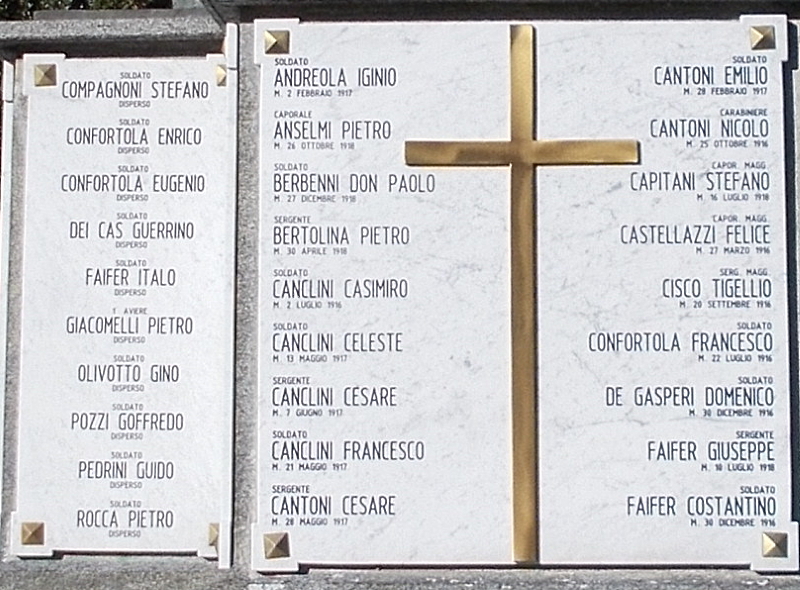 SOLDATO
COMPAGNONI STEFANO
DISPERSO
SOLDATO
CONFORTOLA ENRICO
DISPERSO
SOLDATO
CONFORTOLA EUGENIO
DISPERSO
SOLDATO
DEI CAS GUERRINO
DISPERSO
SOLDATO
FAIFER ITALO
DISPERSO
1° AVIERE
GIACOMELLI PIETRO
DISPERSO
SOLDATO
OLIVOTTO GINO
DISPERSO
SOLDATO
POZZI GOFFREDO
DISPERSO
SOLDATO
PEDRINI GUIDO
DISPERSO
SOLDATO
ROCCA PIETRO
DISPERSO
SOLDATO
ANDREOLA IGINIO
M. 2 FEBBRAIO 1917
CAPORALE
ANSELMI PIETRO
M. 26 OTTOBRE 1918
SOLDATO
BERBENNI DON PAOLO
M. 27 DICEMBRE 1918
SERGENTE
BERTOLINA PIETRO
M. 30 APRILE 1918
SOLDATO
CANCLINI CASIMIRO
M. 2 LUGLIO 1916
SOLDATO
CANCLINI CELESTE
M. 13 MAGGIO 1917
SERGENTE
CANCLINI CESARE
M. 7 GIUGNO 1917
SOLDATO
CANCLINI FRANCESCO
M. 21 MAGGIO 1917
SERGENTE
CANTONI CESARE
M. 28 MAGGIO 1917
SOLDATO
CANTONI EMILIO
M. 28 FEBBRAIO 1917
CARABINIERE
CANTONI NICOLO
M. 25 OTTOBRE 1916
CAPOR. MAGG.
CAPITANI STEFANO
M. 16 LUGLIO 1918
CAPOR. MAGG.
CASTELLAZZI FELICE
M. 27 MARZO 1916
SERG. MAGG.
CISCO TIGELLIO
M. 20 SETTEMBRE 1916
SOLDATO
CONFORTOLA FRANCESCO
M. 22 LUGLIO 1916
SOLDATO
DE GASPERI DOMENICO
M. 30 DICEMBRE 1916
SERGENTE
FAIFER GIUSEPPE
M. 10 LUGLIO 1918
SOLDATO
FAIFER COSTANTINO
M. 30 DICEMBRE 1916